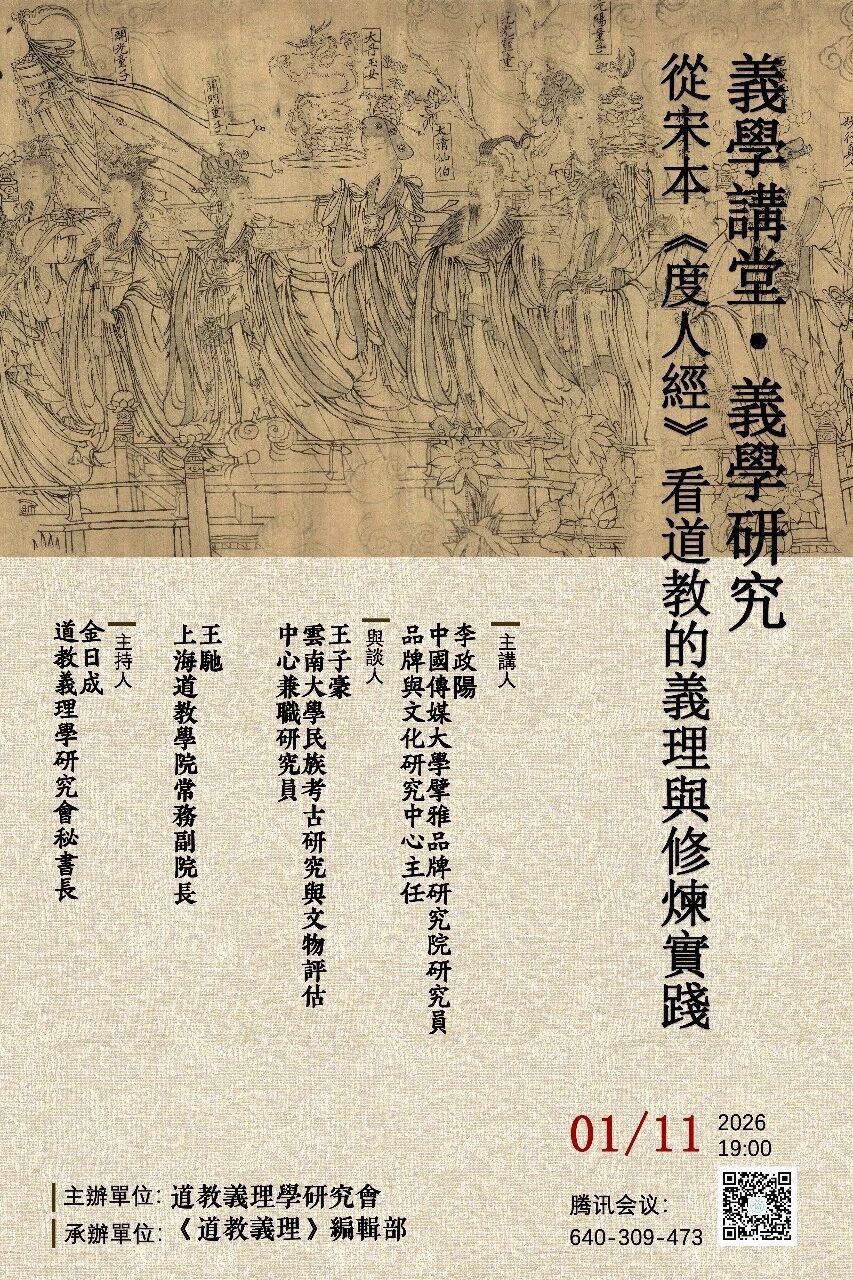 義學講堂·義學研究
從宋本《度人經》看道教的義理與修煉實踐
主講人
李政陽
中國傳媒大學擘雅品牌研究院研究員
品牌與文化研究中心主任
與談人
王子豪
雲南大學民族考古研究與文物評估
中心兼職研究員
王馳
上海道教學院常務副院長
主持人
金日成
道教義理學研究會秘書長
01/11
2026
19:00
腾讯会议：
640-309-473
主辦單位：道教義理學研究會
承辦單位：《道教義理》編輯部
太丹玉女
太清仙伯